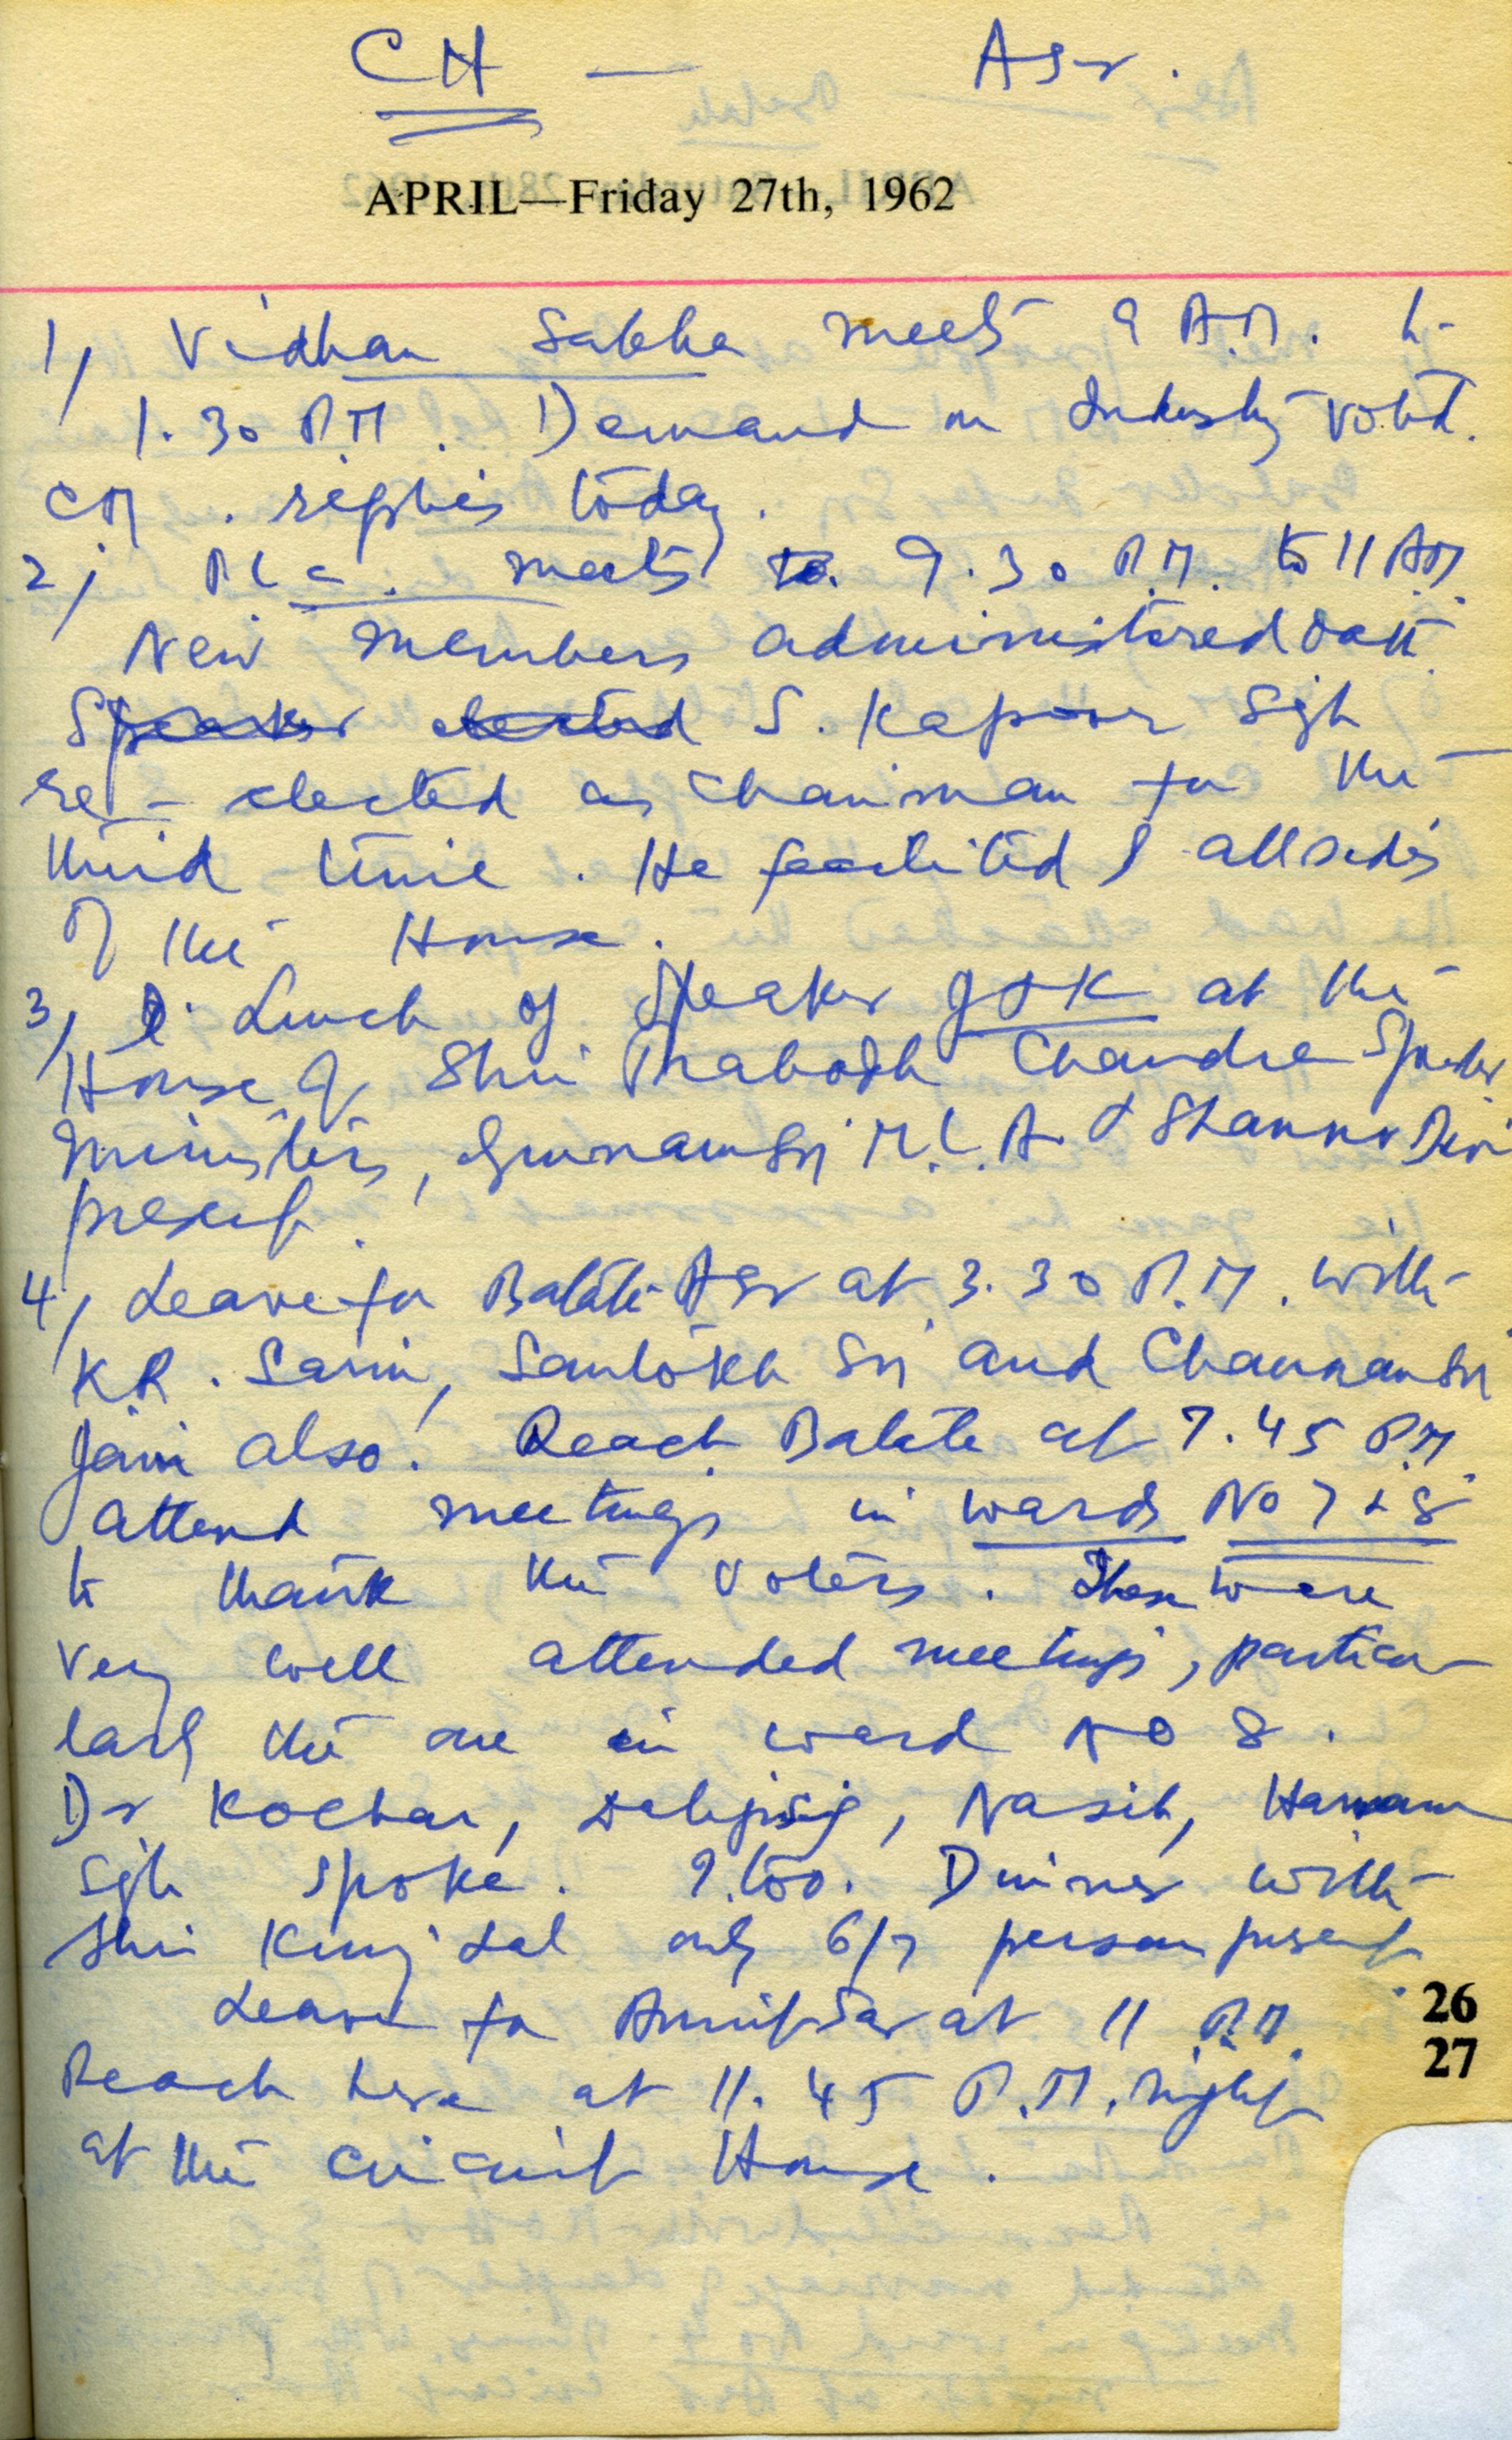 CH — Asr.
APRIL—Friday 27th, 1962
1, Vidhan Sabha meets 9 A.M. to
1.30 P.M. Demand on Industry voted.
CM. replies today.
2, PLC. meets 9.30 P.M. to 11 A.M.
New members administered oath
Speaker elected S. Kapoor Sgh
re-elected as Chairman for the
third time. He facilited by all sides
of the House.
3, Lunch of Speaker J&K at the
House of Shri Prabodh Chandra Speaker
Ministers, Gurnam Sn M.L.A & Shanno Devi
present.
4, Leave for Batala-Asr at 3.30 P.M. with
KR. Sarin, Santokh Sn and Channan Sn
Jani also. Reach Batala at 7.45 P.M.
attend meetings in wards No 7 & 8
to thank the voters. These were
very well attended meetings, particu-
larly the one in ward No 8.
Dr Kochar, Nasib, Harnam
Sgh spoke. I too. Dinner with
Shri Kunj Lal only 6/7 person present
Leave for Amritsar at 11 P.M.
Reach here at 11.45 P.M. night
at the circuit House.
26
27